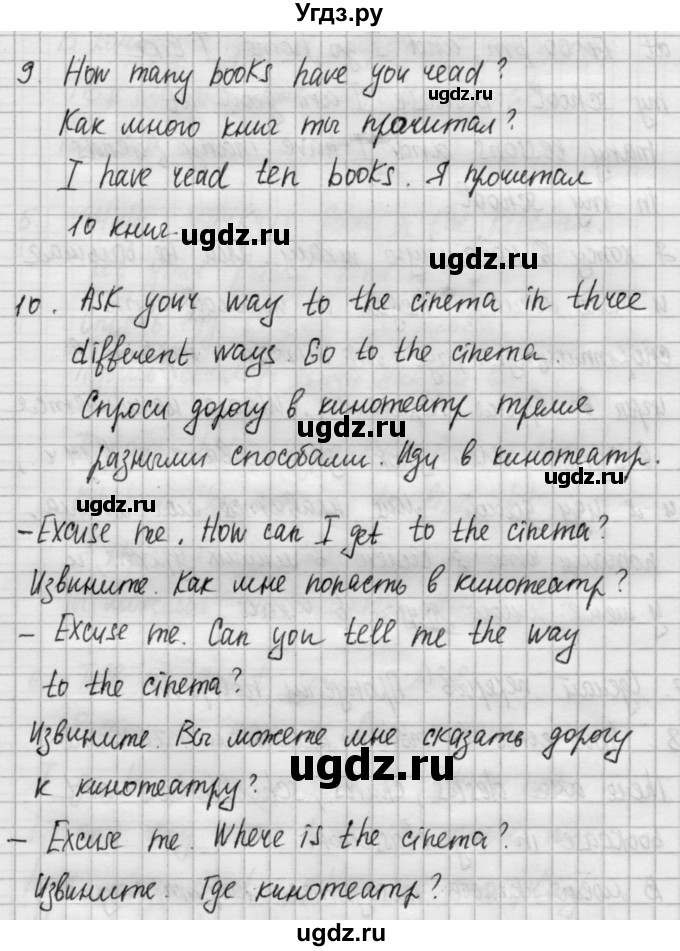 Угдз.ру
9. How many books have you read?
ugdz.ru
Как много книг ты прочитал?
I have read ten books. Я прочитал
10 книг.
ugdz.ru
ugdz.ru
10. Ask your way to the cinema in three
different ways. Go to the cinema.
Спроси дорогу в кинотеатр тремя
ugdz.ru
разными способами. Иди в кинотеатр.
ugdz.ru
ugdz.ru
- Excuse me. How can I get to the cinema?
Извините. Как мне попасть в кинотеатр?
- Excuse me. Can you tell me the way
to the cinema?
Извините. Вы можете мне сказать дорогу
ugdz.ru
к кинотеатру?
- Excuse me. Where is the cinema?
Извините. Где кинотеатр?
ugdz.ru